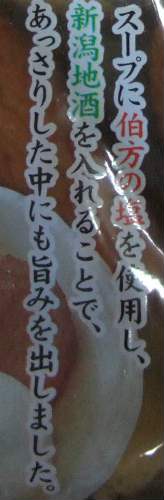 スープに伯方の塩を使用し、
新潟地酒を入れることで、
あっさりした中にも旨みを出しました。